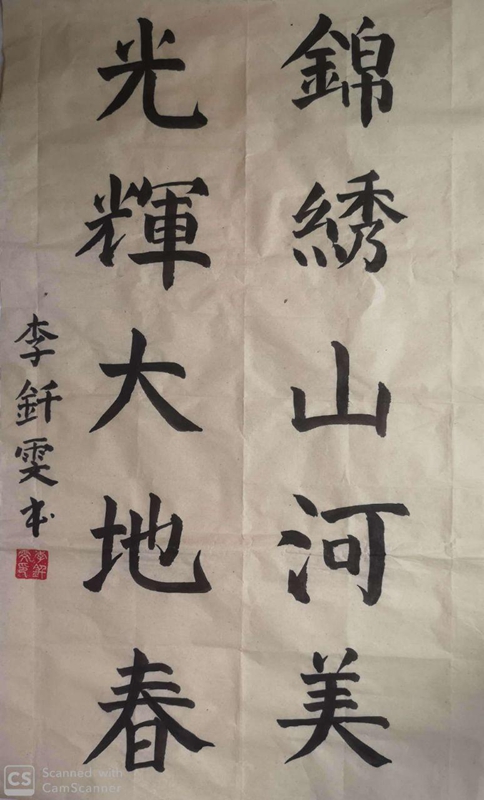 錦綉山河美
光輝大地春
李釺雯书
CS Scanned with CamScanner